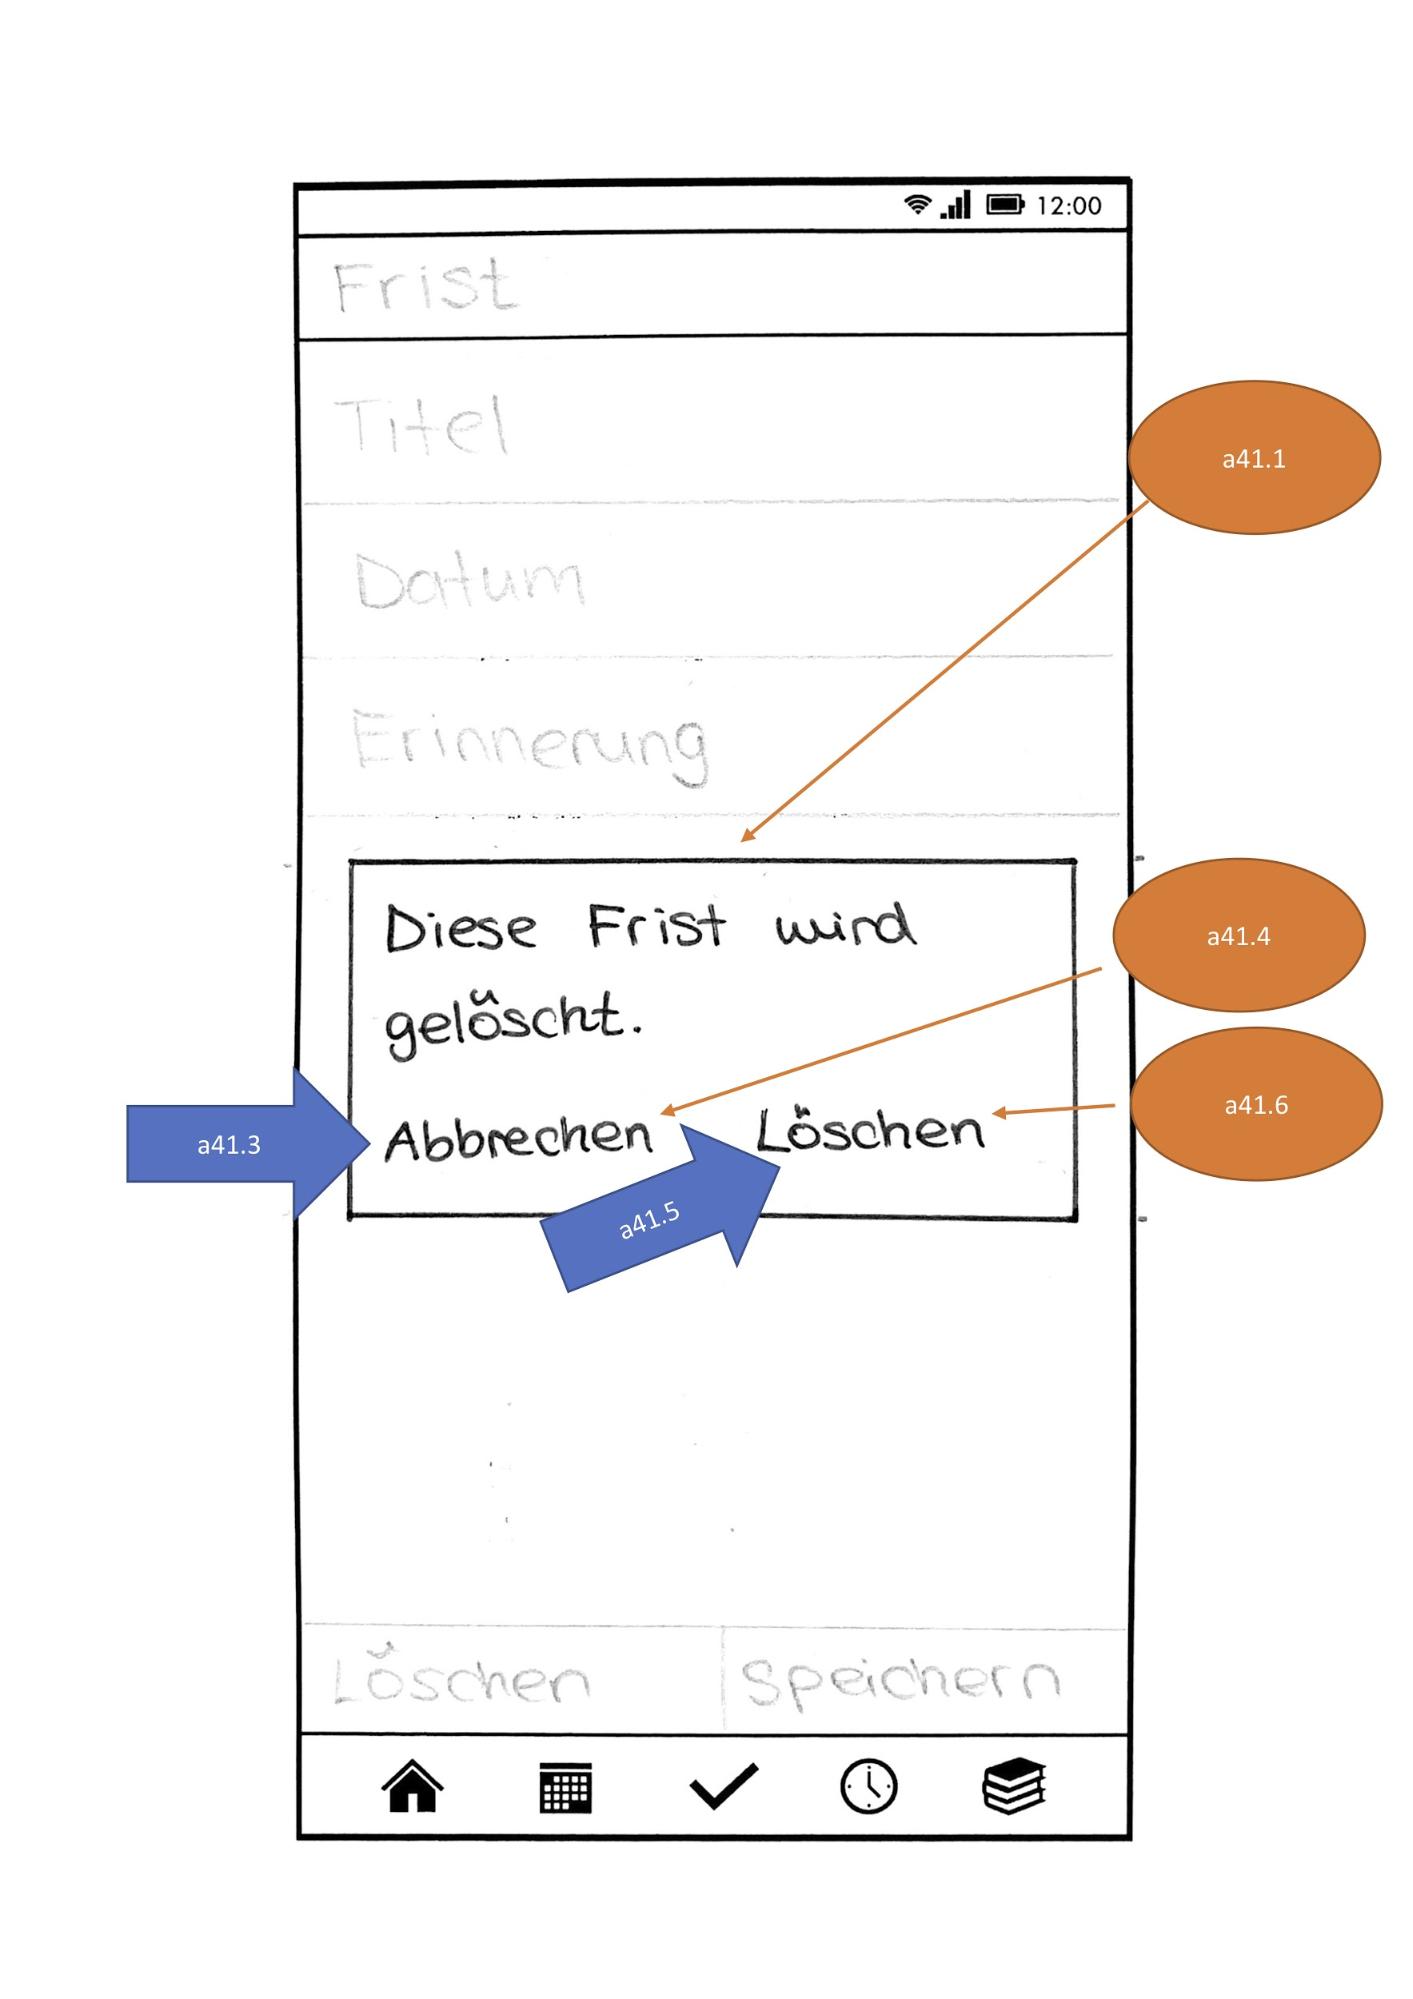 12:00
Frist
Titel
a41.1
Datum
Erinnerung
Diese Frist wird
a41.4
gelöscht.
a41.6
a41.3
Abbrechen
Löschen
a41.5
Löschen
Speichern